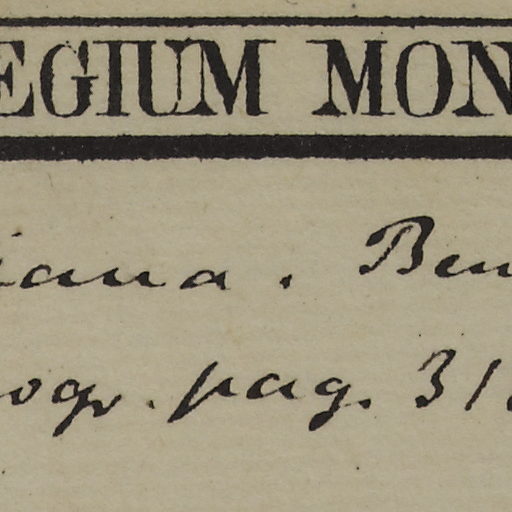 EGIUM MON
iana. Ben
ogr. pag. 31